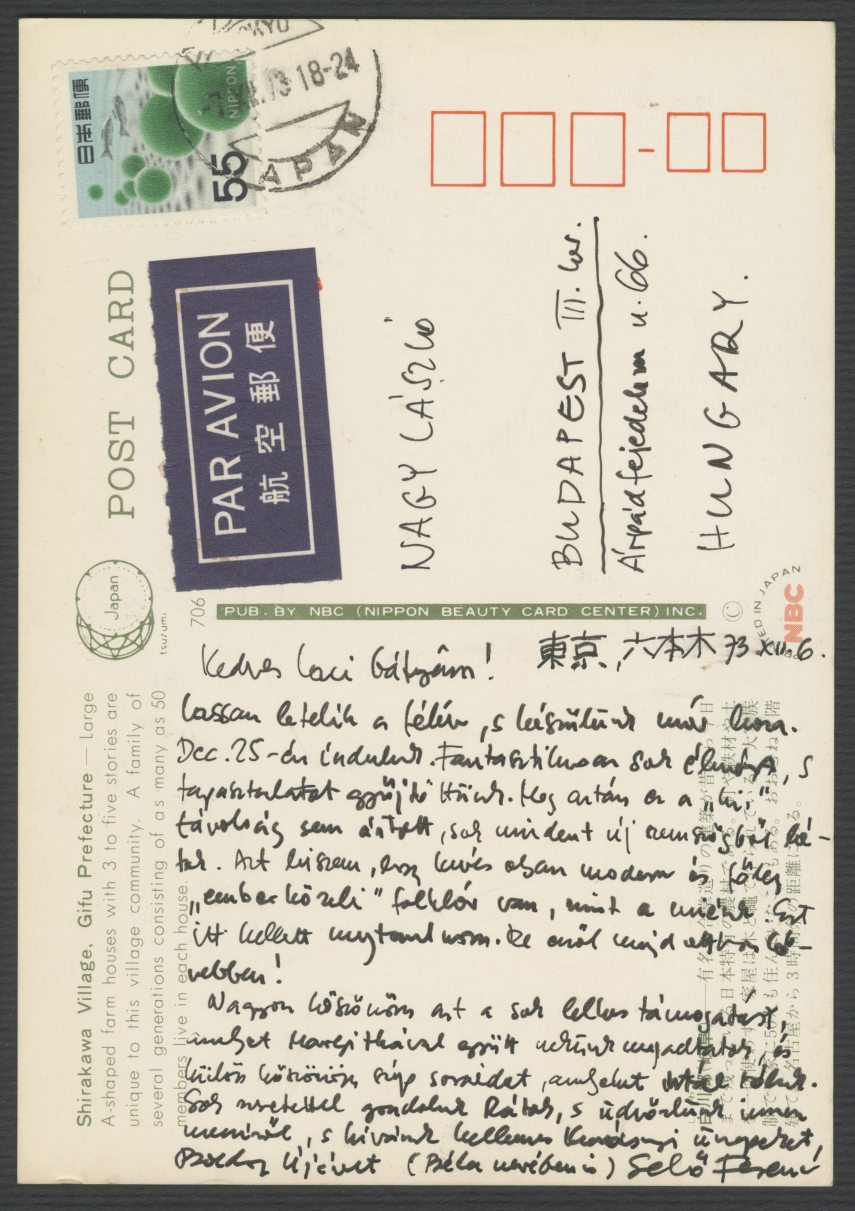 TOKYO
XII.73 18-24
JAPAN
日本郵便
NIPPON
55
POST CARD
PAR AVION
航空郵便
NAGY LÁSZLÓ
BUDAPEST III. ker.
Árpád fejedelem u. 66.
HUNGARY.
Japan
tsuzumi
706
PUB. BY NBC (NIPPON BEAUTY CARD CENTER) INC.
©
NBC
PRINTED IN JAPAN
Shirakawa Village, Gifu Prefecture — large
A-shaped farm houses with 3 to five stories are
unique to this village community. A family of
several generations consisting of as many as 50
members live in each house.
Kedves Laci Bátyám!
東京, 六本木 73 XII. 6.
Lassan letelik a félév, s készülünk már haza.
Dec. 25-én indulunk. Fantasztikusan sok élményt, s
tapasztalatot gyűjtöttünk. Meg aztán ez a „kis"
távolság sem ártott, sok mindent új szemszögből lá-
tok. Azt hiszem, hogy kevés olyan modern és főleg
„emberközeli" folklór van, mint a miénk. Ezt
itt kellett megtanulnom. De erről majd otthon bő-
vebben!
Nagyon köszönöm azt a sok lelkes támogatást,
amelyet Margitkával együtt nekünk megadtatok, és
külön köszönöm szép soraidat, amelyeket írtál rólunk.
Sok szeretettel gondolunk Rátok, s üdvözlünk innen
messziről, s kívánunk kellemes Karácsonyi ünnepeket,
Boldog Újévet (Béla nevében is) Sebő Ferenc